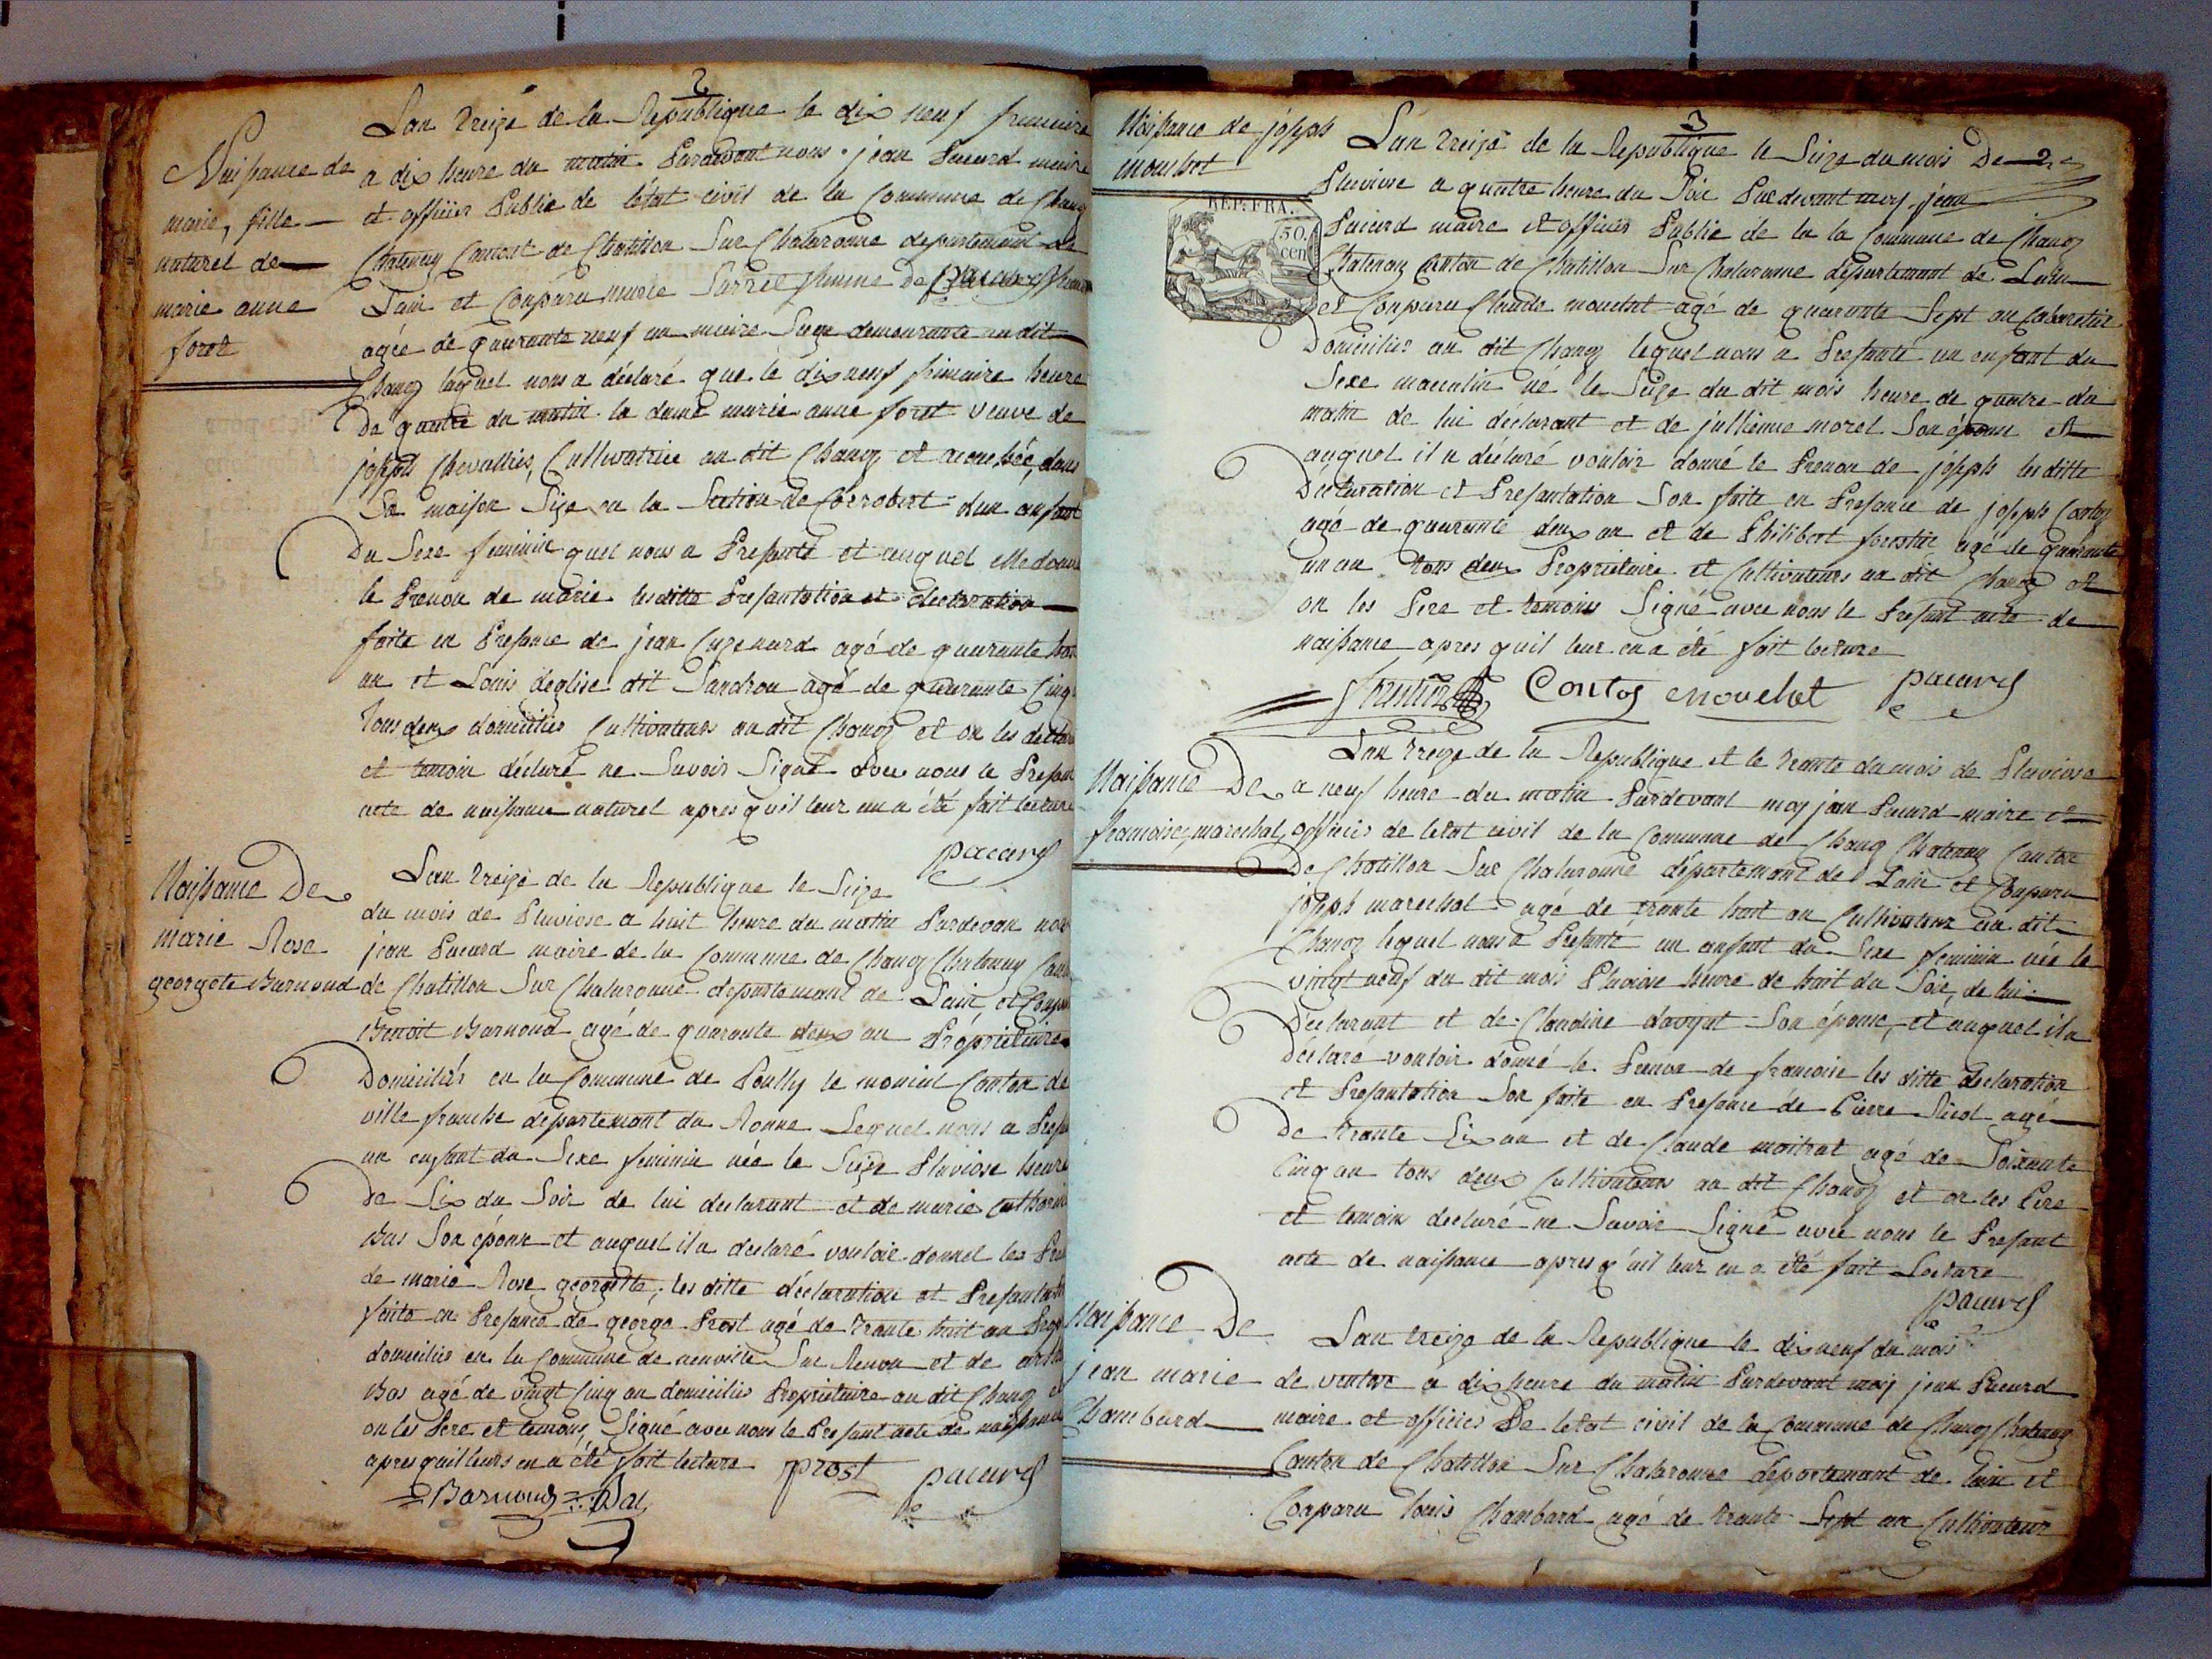 2
Naissance de
marie, fille
naturel de
marie anne
foret
Lan treize de la Republique le dix neuf frimaire
a dix heure du matin Pardevant nous jean Pacard maire
et officier Public de letat civil de la Commune de Chanoz
Chatenay Canton de Chatillon Sur Chalaronne departement de
Lain et Conparu marie Sarret femme de
agée de quarante neuf an Sage demeurante au dit
Chanoz laquel nous a déclaré que le dix neuf frimaire heure
De quatre du matin la dame marie anne foret veuve de
joseph Chevallier, Cultivatrice au dit Chanoz et acouchée, dans
Sa maison Size en la Section de Corrobert dun anfant
Du Sexe feminin quel nous a Presanté et auquel elle donne
le Prenon de marie lesditte Presantation et declaration
faite en Presance de jean Cugenard agé de quarante
an et Louis déglise dit Landrou agé de quarante Cinq
Tous deux domicilies Cultivateurs au dit Chanoz et on les
et temoin déclaré ne Savoir Signé avec nous le Presant
acte de naissance naturel apres quil leur en a été fait lecture
pacard
Naissance De
marie Rose
georgete Barnoud
Lan treize de la Republique le Seize
du mois de Pluviose a huit heure du matin Pardevan nous
jean Pacard maire de la Commune de Chanoz Chatenay
de Chatillon Sur Chalaronne departement de Lain, et Conparu
Benoit Barnoud agé de quarante deux an Propriétaire
Domicilies en la Commune de Poully le monial Canton de
ville franche departement du Ronne Lequel nous a
un enfant du Sexe feminin née le Sieze Pluviose heure
De Six du Soir de lui declarant et de marie Catherine
Bas Son épouse et auquel il a declaré vouloir donner les
de marie Rose georgette, les ditte déclaration et Presantation
faite en Presance de george Prost agé de trante huit an
domicilies en la Commune de neuville Sur Renon et de
Bas agé de vingt Cinq an domicilies Propriétaire au dit Chanoz et
on les Pere et temoins Signé avec nous le Presant acte de naissance
apres quil leurs en a été fait lecture
prost pacard
Barnoud Bas
3
Naissance de joseph
mouchet
REP. FRA.
50
cen
Lan treize de la Republique le Seize du mois De
Pluviose a quatre heure du Soir Par devant moy jean
Pacard maire et officier Public de la la Commune de Chanoz
Chatenay Canton de Chatillon Sur Chalaronne département de Lain
et Conparu Claude mouchet agé de quarante Sept an Cabaretier
Domicilier au dit Chanoz lequel nous a Presanté un enfant du
Sexe masculin né le Seize du dit mois heure de quatre du
matin de lui déclarant et de jullienne morel Son épouse et
auquel il a déclaré vouloir donné le Prenon de joseph lesditte
Déclaration et Presantation Son faite en Presance de joseph Contoz
agé de quarante deux an et de Philibert forestier agé de quarante
un an tous deux Propriétaire et Cultivateurs au dit Chanoz et
on les Pere et temoins Signé avec nous le Presant acte de
naissance apres quil leur en a été fait lecture
Contoz mouchet pacard
Naissance De
francoise marechal
Lan treize de la Republique et le trante du mois de Pluviose
a neuf heure du matin Pardevant moy jean Pacard maire et
officier de letat civil de la Commune de Chanoz Chatenay Canton
De Chatillon Sur Chalaronne département de Lain et Conparu
joseph marechal agé de trante huit an Cultivateur au dit
Chanoz lequel nous a Presanté un anfant du Sexe feminin née le
vingt neuf du dit mois Pluviose heure de huit du Soir, de lui
Déclarant et de Claudine davynt Son épouse, et auquel il a
Déclaré vouloir donné le Prenon de francoise les ditte declaration
et Presantation Son faite en Presance de Pierre agé
De trante Six an et de Claude moitrat agé de Soixante
Cinq an tous deux Cultivateurs au dit Chanoz et on les Pere
et temoin declaré ne Savoir Signé avec nous le Presant
acte de naissance apres quil leur en a été fait Lecture
pacard
Naissance De
jean marie
Chambard
Lan treize de la Republique le dix neuf du mois
de ventose a dix heure du matin Pardevant moy jean Pacard
maire et officier De letat civil de la Commune de Chanoz Chatenay
Canton de Chatillon Sur Chalaronne departement de lain et
Conparu louis Chambard agé de trante Sept an Cultivateur